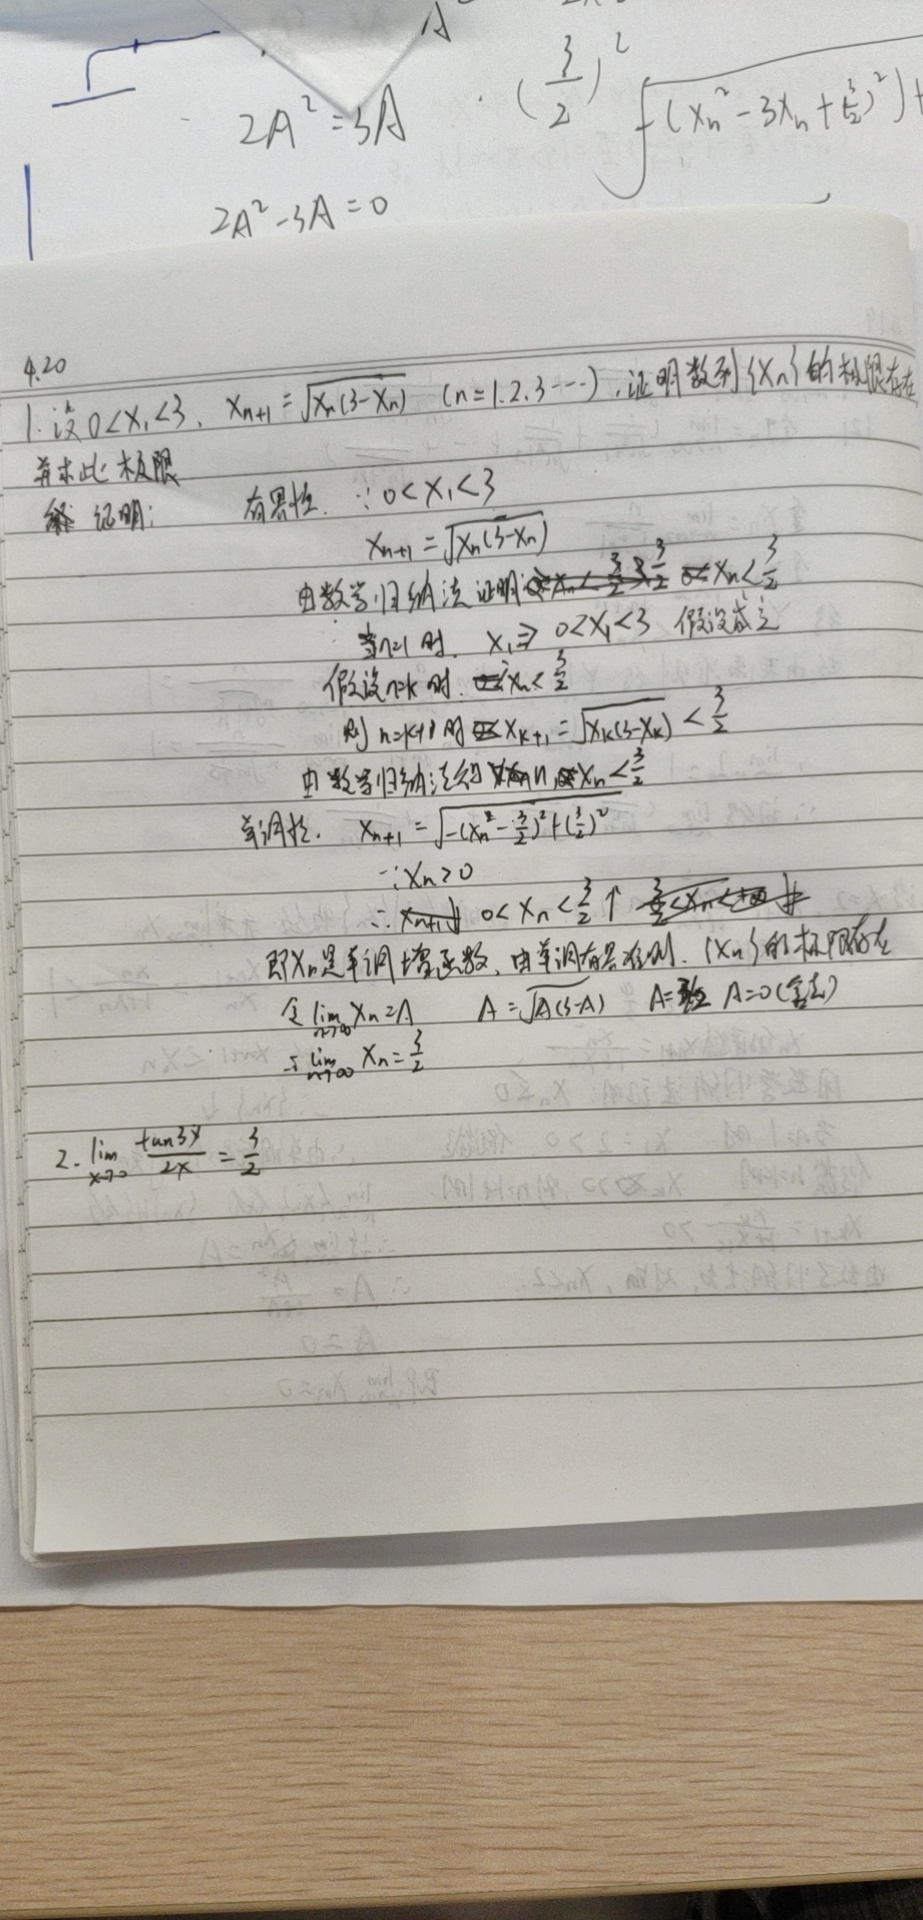 2A²=3A
(3/2)²
√(xn²-3xn+(3/2)²)+
2A²-3A=0
4.20
1.设0<x₁<3, xn+1=√xn(3-xn) (n=1.2.3…),证明数列{xn}的极限存在
并求此极限
证明: 有界性. ∵0<x₁<3
xn+1=√xn(3-xn)
由数学归纳法证明 xn<3/2
当n=1时. x₁⇒0<x₁<3 假设成立
假设n=k时. xn<3/2
则n=k+1时 xk+1=√xk(3-xk)<3/2
由数学归纳法知 n, xn<3/2
单调性. xn+1=√-(xn²-3/2)²+(3/2)²
∵xn>0
∴ 0<xn<3/2↑
即xn是单调增函数,由单调有界准则.{xn}的极限存在
令lim n→∞ xn=A A=√A(3-A) A=3/2 A=0(舍去)
∴lim n→∞ xn=3/2
2. lim x→0 tan3x/2x=3/2